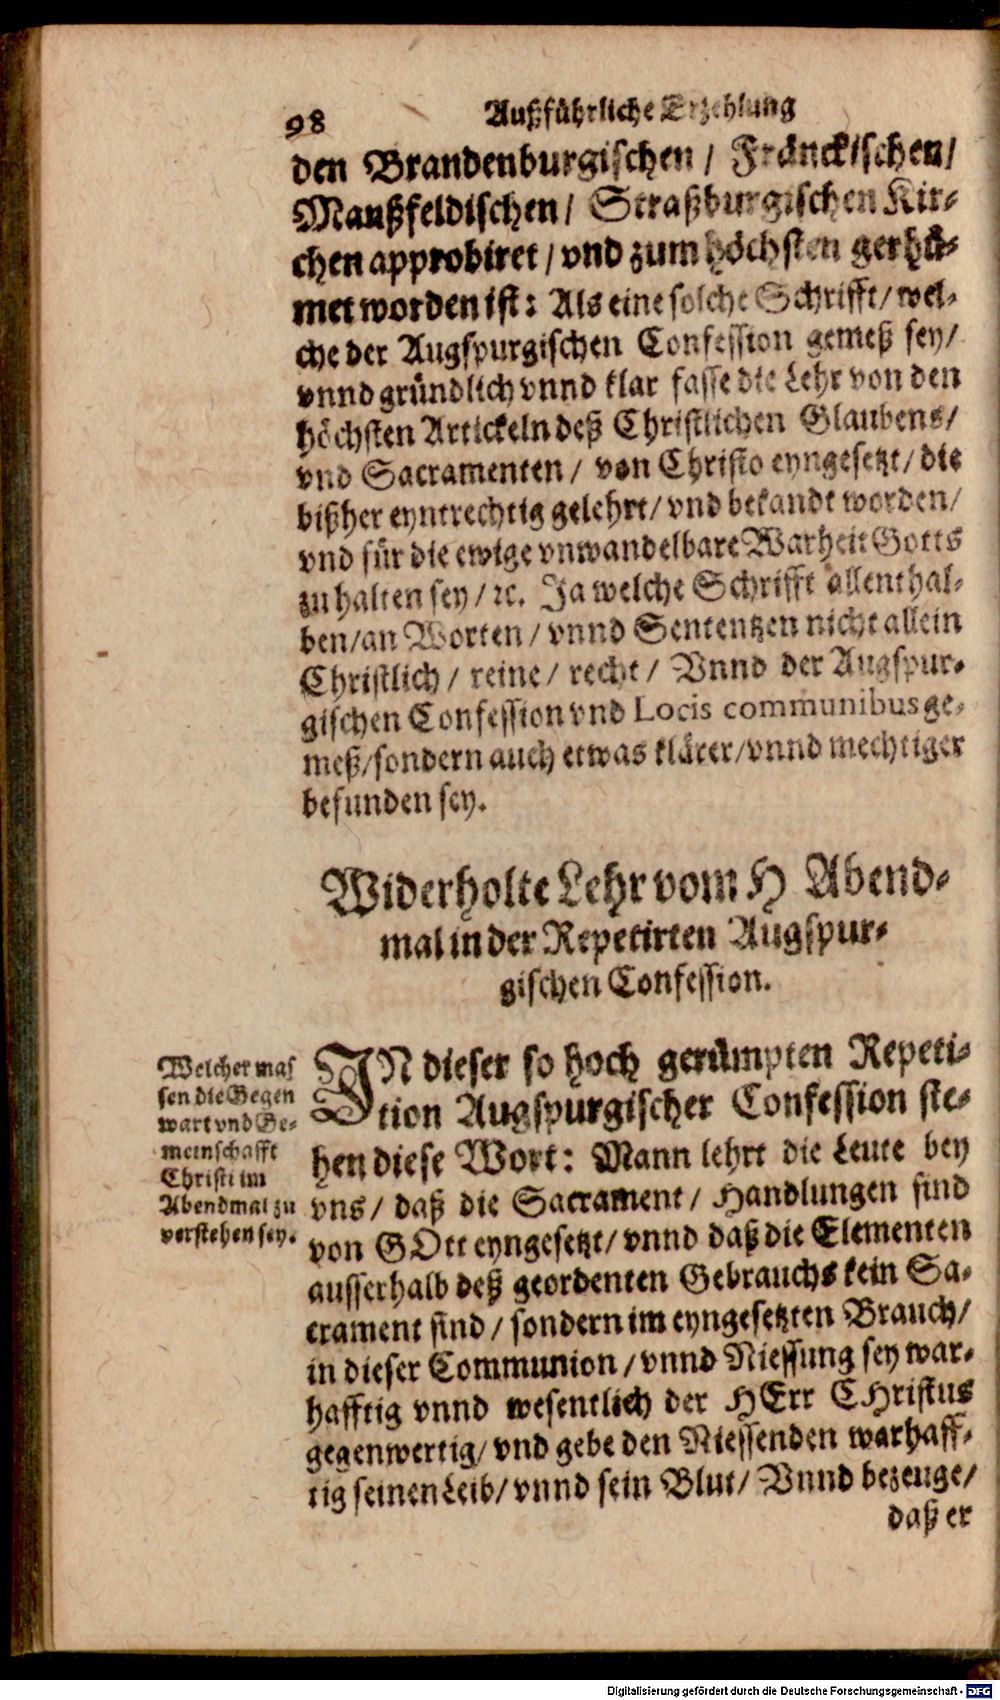 98 Außführliche Erzehlung
den Brandenburgischen / Fränckischen/
Manßfeldischen/ Straßburgischen Kir-
chen approbiret / vnd zum höchsten gerhü-
met worden ist: Als eine solche Schrifft/ wel-
che der Augspurgischen Confession gemeß sey/
vnnd gründlich vnnd klar fasse die Lehr von den
höchsten Artickeln deß Christlichen Glaubens/
vnd Sacramenten / von Christo eyngesetzt/ die
bißher eyntrechtig gelehrt/ vnd bekandt worden/
vnd für die ewige vnwandelbare Warheit Gotts
zu halten sey / ꝛc. Ja welche Schrifft allenthal-
ben/an Worten / vnnd Sententzen nicht allein
Christlich / reine/ recht / Vnnd der Augspur-
gischen Confession vnd Locis communibus ge-
meß/sondern auch etwas klärer/vnnd mechtiger
befunden sey.
Widerholte Lehr vom H Abend-
mal in der Repetirten Augspur-
gischen Confession.
Welcher mas
sen die Gegen
wart vnd Ge-
meinschafft
Christi im
Abendmal zu
verstehen sey.
IN dieser so hoch gerümpten Repeti-
tion Augspurgischer Confession ste-
hen diese Wort: Mann lehrt die Leute bey
vns / daß die Sacrament / Handlungen sind
von GOtt eyngesetzt/ vnnd daß die Elementen
ausserhalb deß geordenten Gebrauchs kein Sa-
crament sind / sondern im eyngesetzten Brauch/
in dieser Communion / vnnd Niessung sey war-
hafftig vnnd wesentlich der HErr CHristus
gegenwertig/ vnd gebe den Niessenden warhaff-
tig seinen Leib/ vnnd sein Blut/ Vnnd bezeuge/
daß er
Digitalisierung gefördert durch die Deutsche Forschungsgemeinschaft - DFG